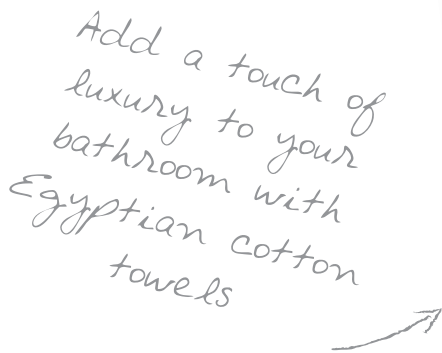 Add a touch of
luxury to your
bathroom with
Egyptian cotton
towels